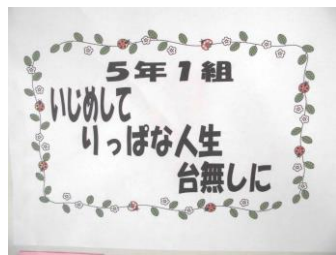 5年1組
いじめして
りっぱな人生
台無しに